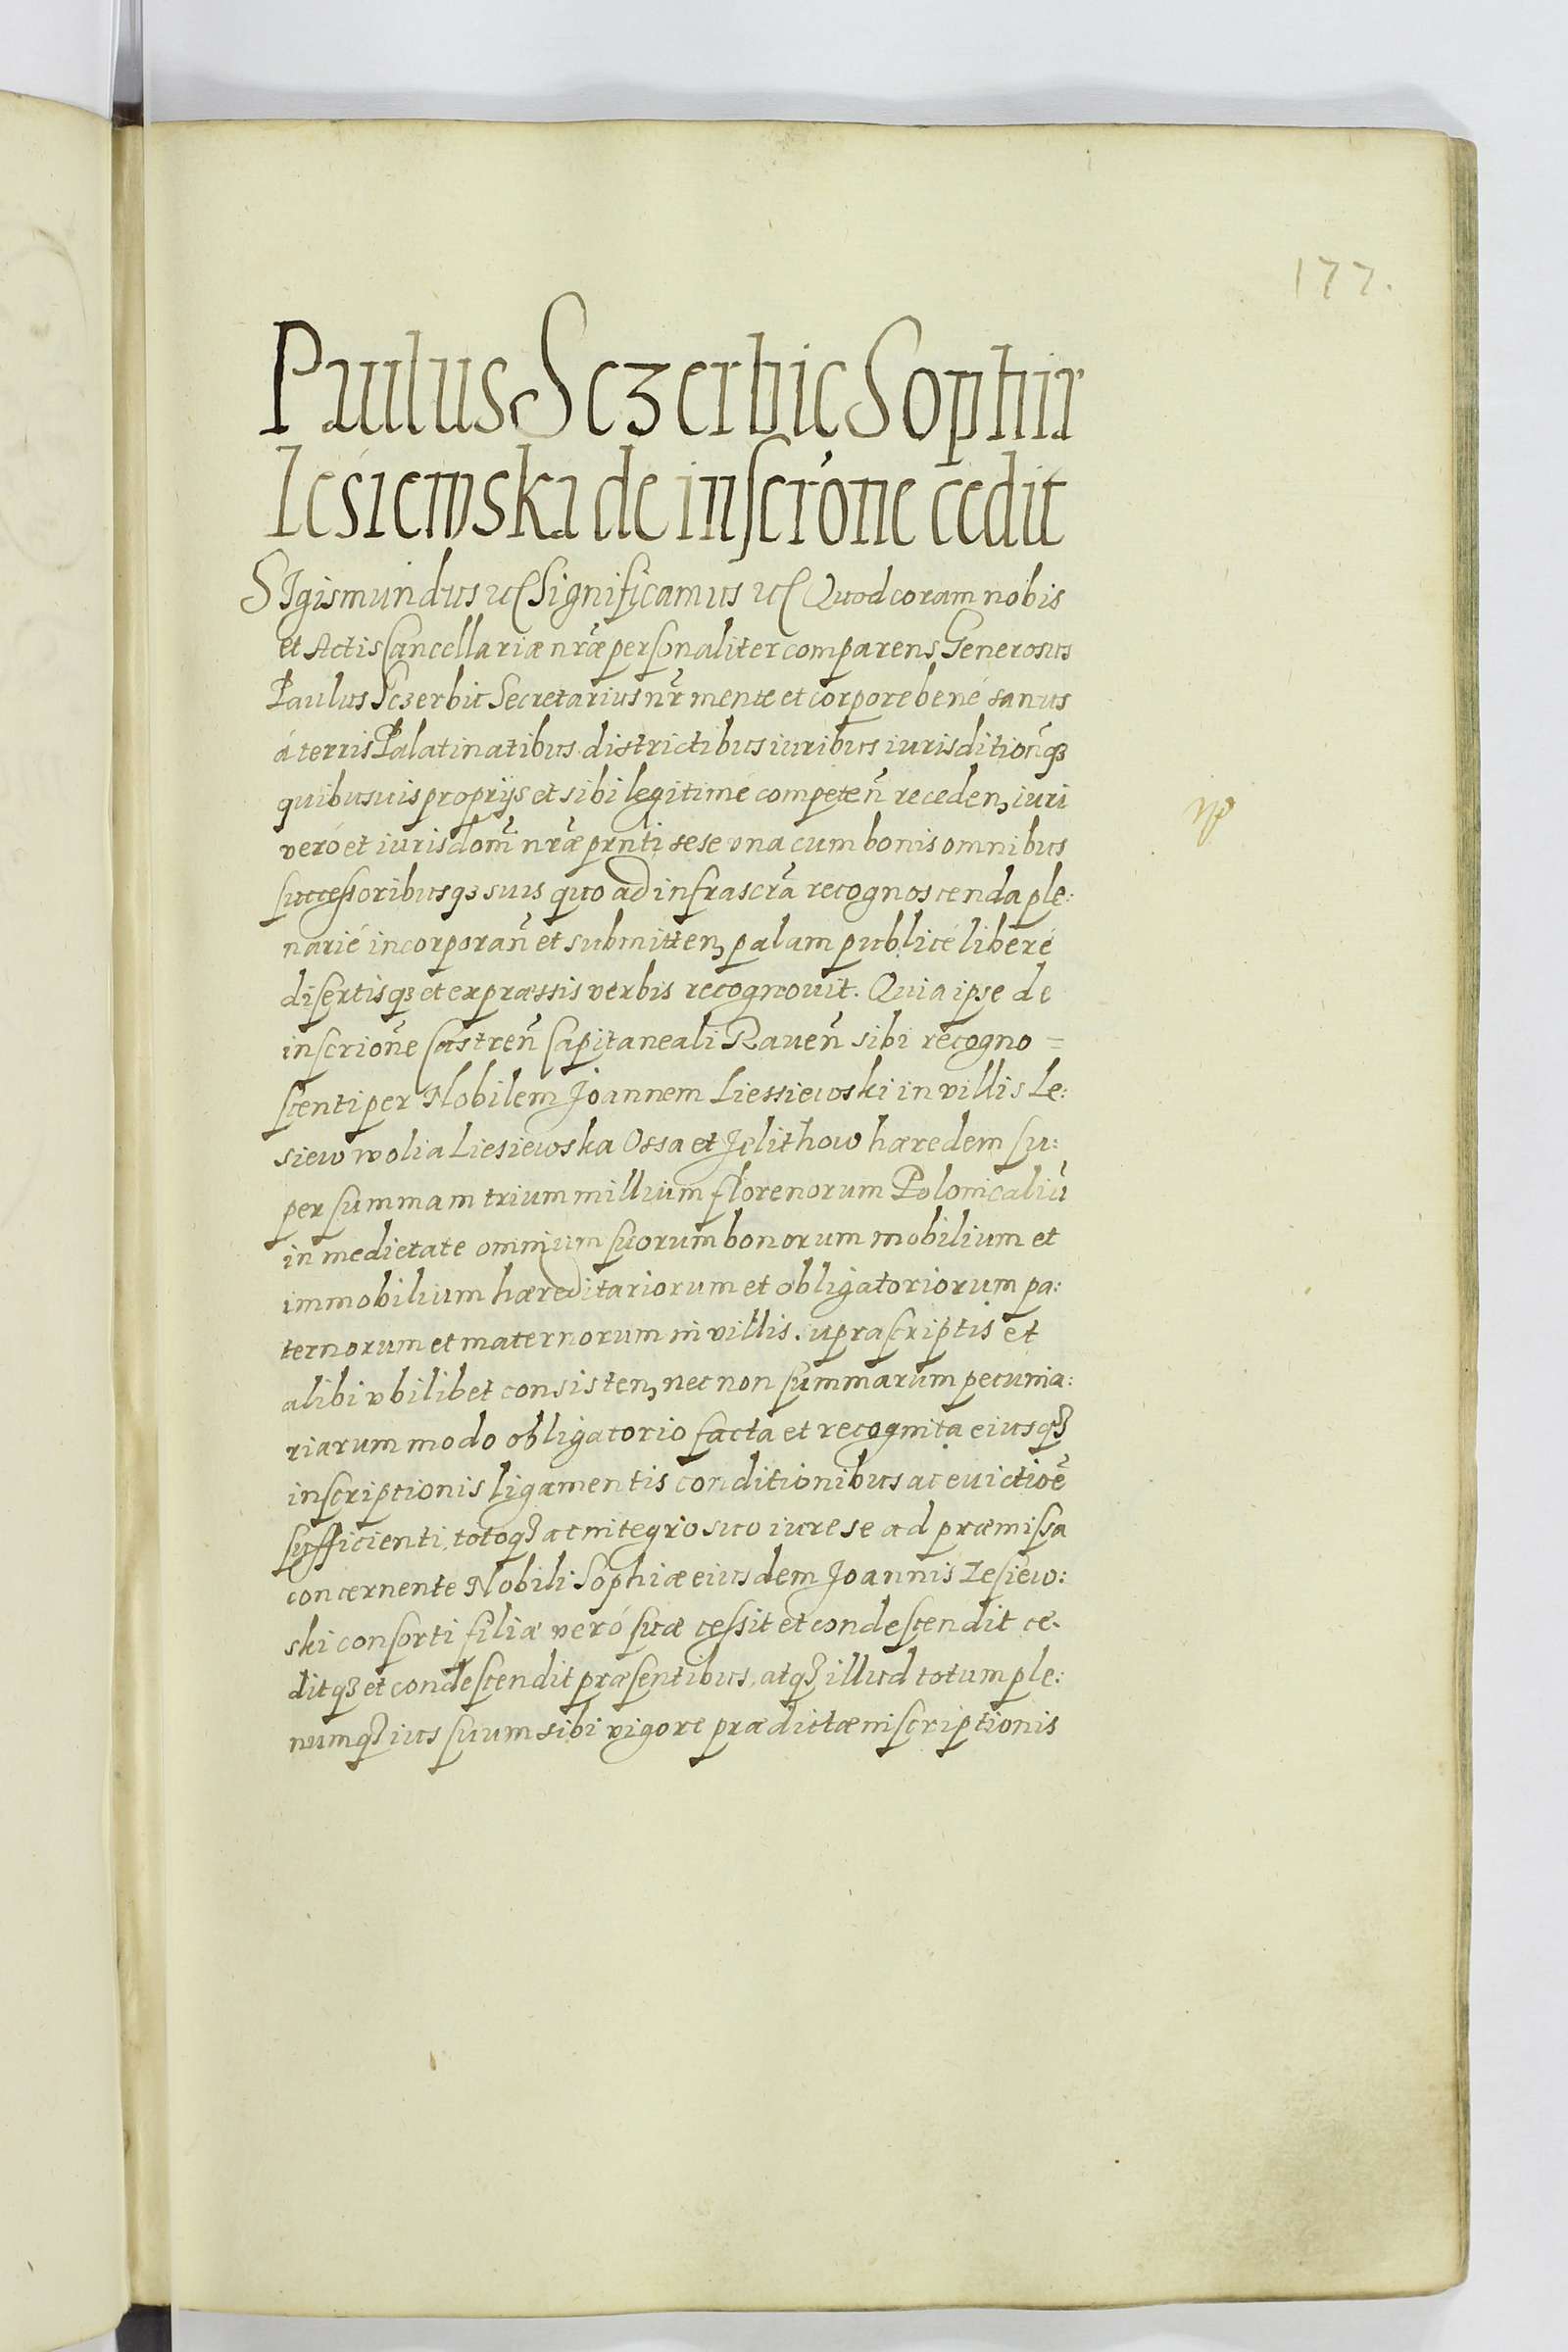 177.
Paulus Sczerbic Sophiæ
Lesiewska de inscrōne cedit
SIgismundus etc Significamus etc Quod coram nobis
et Actis Cancellariæ nr̃æ personaliter comparens Generosus
Paulus Sczerbic Secretarius nr̃ mente et corpore bené sanus
á terris Palatinatibus districtibus iuribus iurisditioñq3
quibusuis proprijs et sibi legitimé competeñ receden, iuri
veró et iurisdom̃ nr̃æ prnti sese vna cum bonis omnibus
successoribusq3 suis quo ad infrascr̃a recognoscenda ple:
narié incorporañ et submitten, palam publicé liberé
disertisq3 et expræssis verbis recognouit. Quia ipse de
inscrioñe Castreñ Capitaneali Raueñ sibi recogno=
scenti per Nobilem Joannem Liessiewski in villis Le:
siew wolia Liesiewska Ossa et Jelithow hæredem su:
per summam trium millium florenorum Polonicaliũ
in medietate omnium suorum bonorum mobilium et
immobilium hæreditariorum et obligatoriorum pa:
ternorum et maternorum in villis suprascriptis et
alibi vbilibet consisten, nec non summarum pecunia:
riarum modo obligatorio facta et recognita eiusq3
inscriptionis ligamentis conditionibus ac euictiōe
sufficienti, totoq3 ac integro suo iure se ad præmissa
concernente Nobili Sophiæ eiusdem Joannis Lesiew:
ski consorti filiæ veró suæ cessit et condescendit ce-
ditq3 et condescendit præsentibus, atq3 illud totum ple:
numq3 ius suum sibi vigore prædictæ inscriptionis